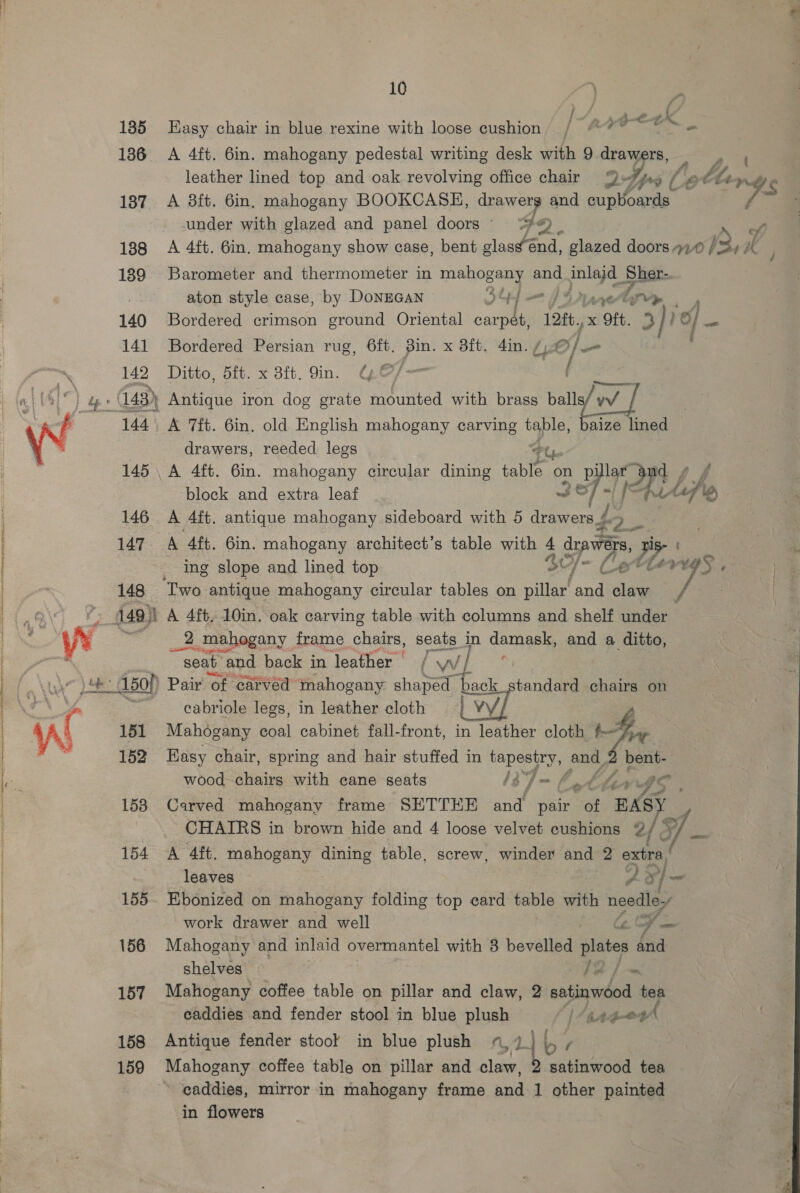 10
135 Easy chair in blue rexine with loose cushion
136 A 4ft. 6in. mahogany pedestal writing desk with 9 drawers,
leather lined top and oak revolving office chair
137 A 3ft. 6in. mahogany BOOKCASE, drawers and cupboards
under with glazed and panel doors
138 A 4ft. 6in. mahogany show case, bent glass end, glazed doors
139 Barometer and thermometer in mahogany and inlaid Sher-
aton style case, by DONEGAN
140 Bordered crimson ground Oriental carpet, 12ft. x 9ft.
141 Bordered Persian rug, 6ft. 3in. x 3ft. 4in.
142 Ditto, 5ft. x 3ft. 9in.
143 Antique iron dog grate mounted with brass balls
144 A 7ft. 6in. old English mahogany carving table, baize lined
drawers, reeded legs
145 A 4ft. 6in. mahogany circular dining table on pillar and
block and extra leaf
146 A 4ft. antique mahogany sideboard with 5 drawers
147 A 4ft. 6in. mahogany architect's table with 4 drawers, ris-
ing slope and lined top
148 Two antique mahogany circular tables on pillar and claw
149 A 4ft. 10in. oak carving table with columns and shelf under
2 mahogany frame chairs, seats in damask, and a ditto,
seat and back in leather
150 Pair of carved mahogany shaped back standard chairs on
cabriole legs, in leather cloth
151 Mahogany coal cabinet fall-front, in leather cloth
152 Easy chair, spring and hair stuffed in tapestry, and 2 bent-
wood chairs with cane seats
153 Carved mahogany frame SETTEE and pair of EASY
CHAIRS in brown hide and 4 loose velvet cushions
154 A 4ft. mahogany dining table, screw, winder and 2 extra
leaves
155 Ebonized on mahogany folding top card table with needle-
work drawer and well
156 Mahogany and inlaid overmantel with 3 bevelled plates and
shelves
157 Mahogany coffee table on pillar and claw, 2 satinwood tea
caddies and fender stool in blue plush
158 Antique fender stool in blue plush
159 Mahogany coffee table on pillar and claw, 2 satinwood tea
caddies, mirror in mahogany frame and 1 other painted
in flowers